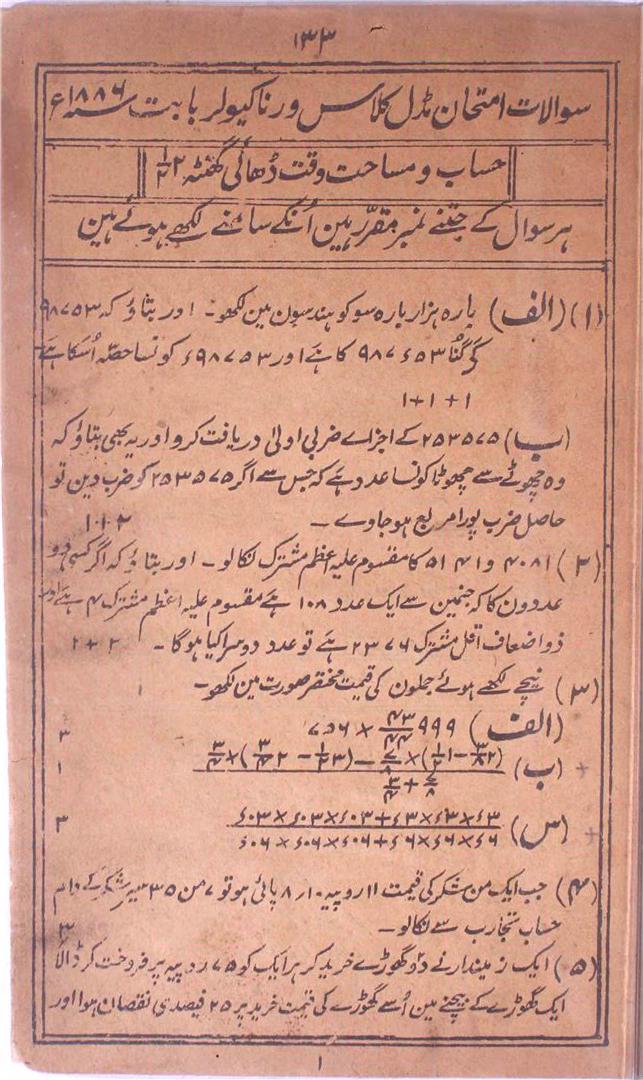 ۱۳۳
سوالات امتحان مڈل کلاس ورناکیولر بابت سنہ ۱۸۸۶ع
حساب و مساحت وقت ڈھائی گھنٹہ ۲ ۱/۲
ہر سوال کے جتنے نمبر مقرّر ہین اُنکے سامنے لکھے ہوئے ہین
(۱) (الف) بارہ ہزار بارہ سو کو ہندسون مین لکھو۔ اور بتاؤ کہ ۹۸۷۵۳
کَے گُنا ۹۸۷ء۵۳ کا ہے اور ۹۸۷۵۳ء کونسا حصّہ اُسکا ہے
۱ + ۱ + ۱
(ب) ۲۵۳۵۷۵ کے اجزاے ضربی اولیٰ دریافت کرو اور یہ بھی بتاؤ کہ
وہ چھوٹے سے چھوٹا کونسا عدد ہے کہ جس سے اگر ۲۵۳۵۷۵ کو ضرب دین تو
حاصل ضرب پورا مربع ہو جاوے ۔ ۲+۱
(۲) ۴۰۸۱ و ۵۱۴۱ کا مقسوم علیہ اعظم مشترک نکالو۔ اور بتاؤ کہ اگر کسی دو
عددون کا کہ جنمین سے ایک عدد ۱۰۸ ہے مقسوم علیہ اعظم مشترک ۴ ہے اور
ذو اضعاف اقل مشترک ۲۳۷۶ ہے تو عدد دوسرا کیا ہوگا ۔ ۲ + ۲
(۳) نیچے لکھے ہوئے جملون کی قیمت مختصر صورت مین لکھو۔
(الف) ۹۹۹ ۴۳/۴۴ × ۷۵۶ ۳
(ب) ۱
(س) ۶۳×۶۳×۶۳+۶۰۳×۶۰۳×۶۰۳ / ۶۶×۶۶×۶۶+۶۰۶×۶۰۶×۶۰۶ ۳
(۴) جب ایک من شکر کی قیمت ۱۱ روپیہ ۱۰ر ۸ پائی ہو تو ۷ من ۳۵ سیر شکر کے دام
حساب تجارت سے نکالو۔ ۳
(۵) ایک زمیندار نے دو گھوڑے خرید کر ہر ایک کو ۷۵ روپیہ پر فروخت کر ڈالا
ایک گھوڑے کے بیچنے مین اُسے گھوڑے کی قیمت خرید پر ۲۵ فیصدی نقصان ہوا اور
۱